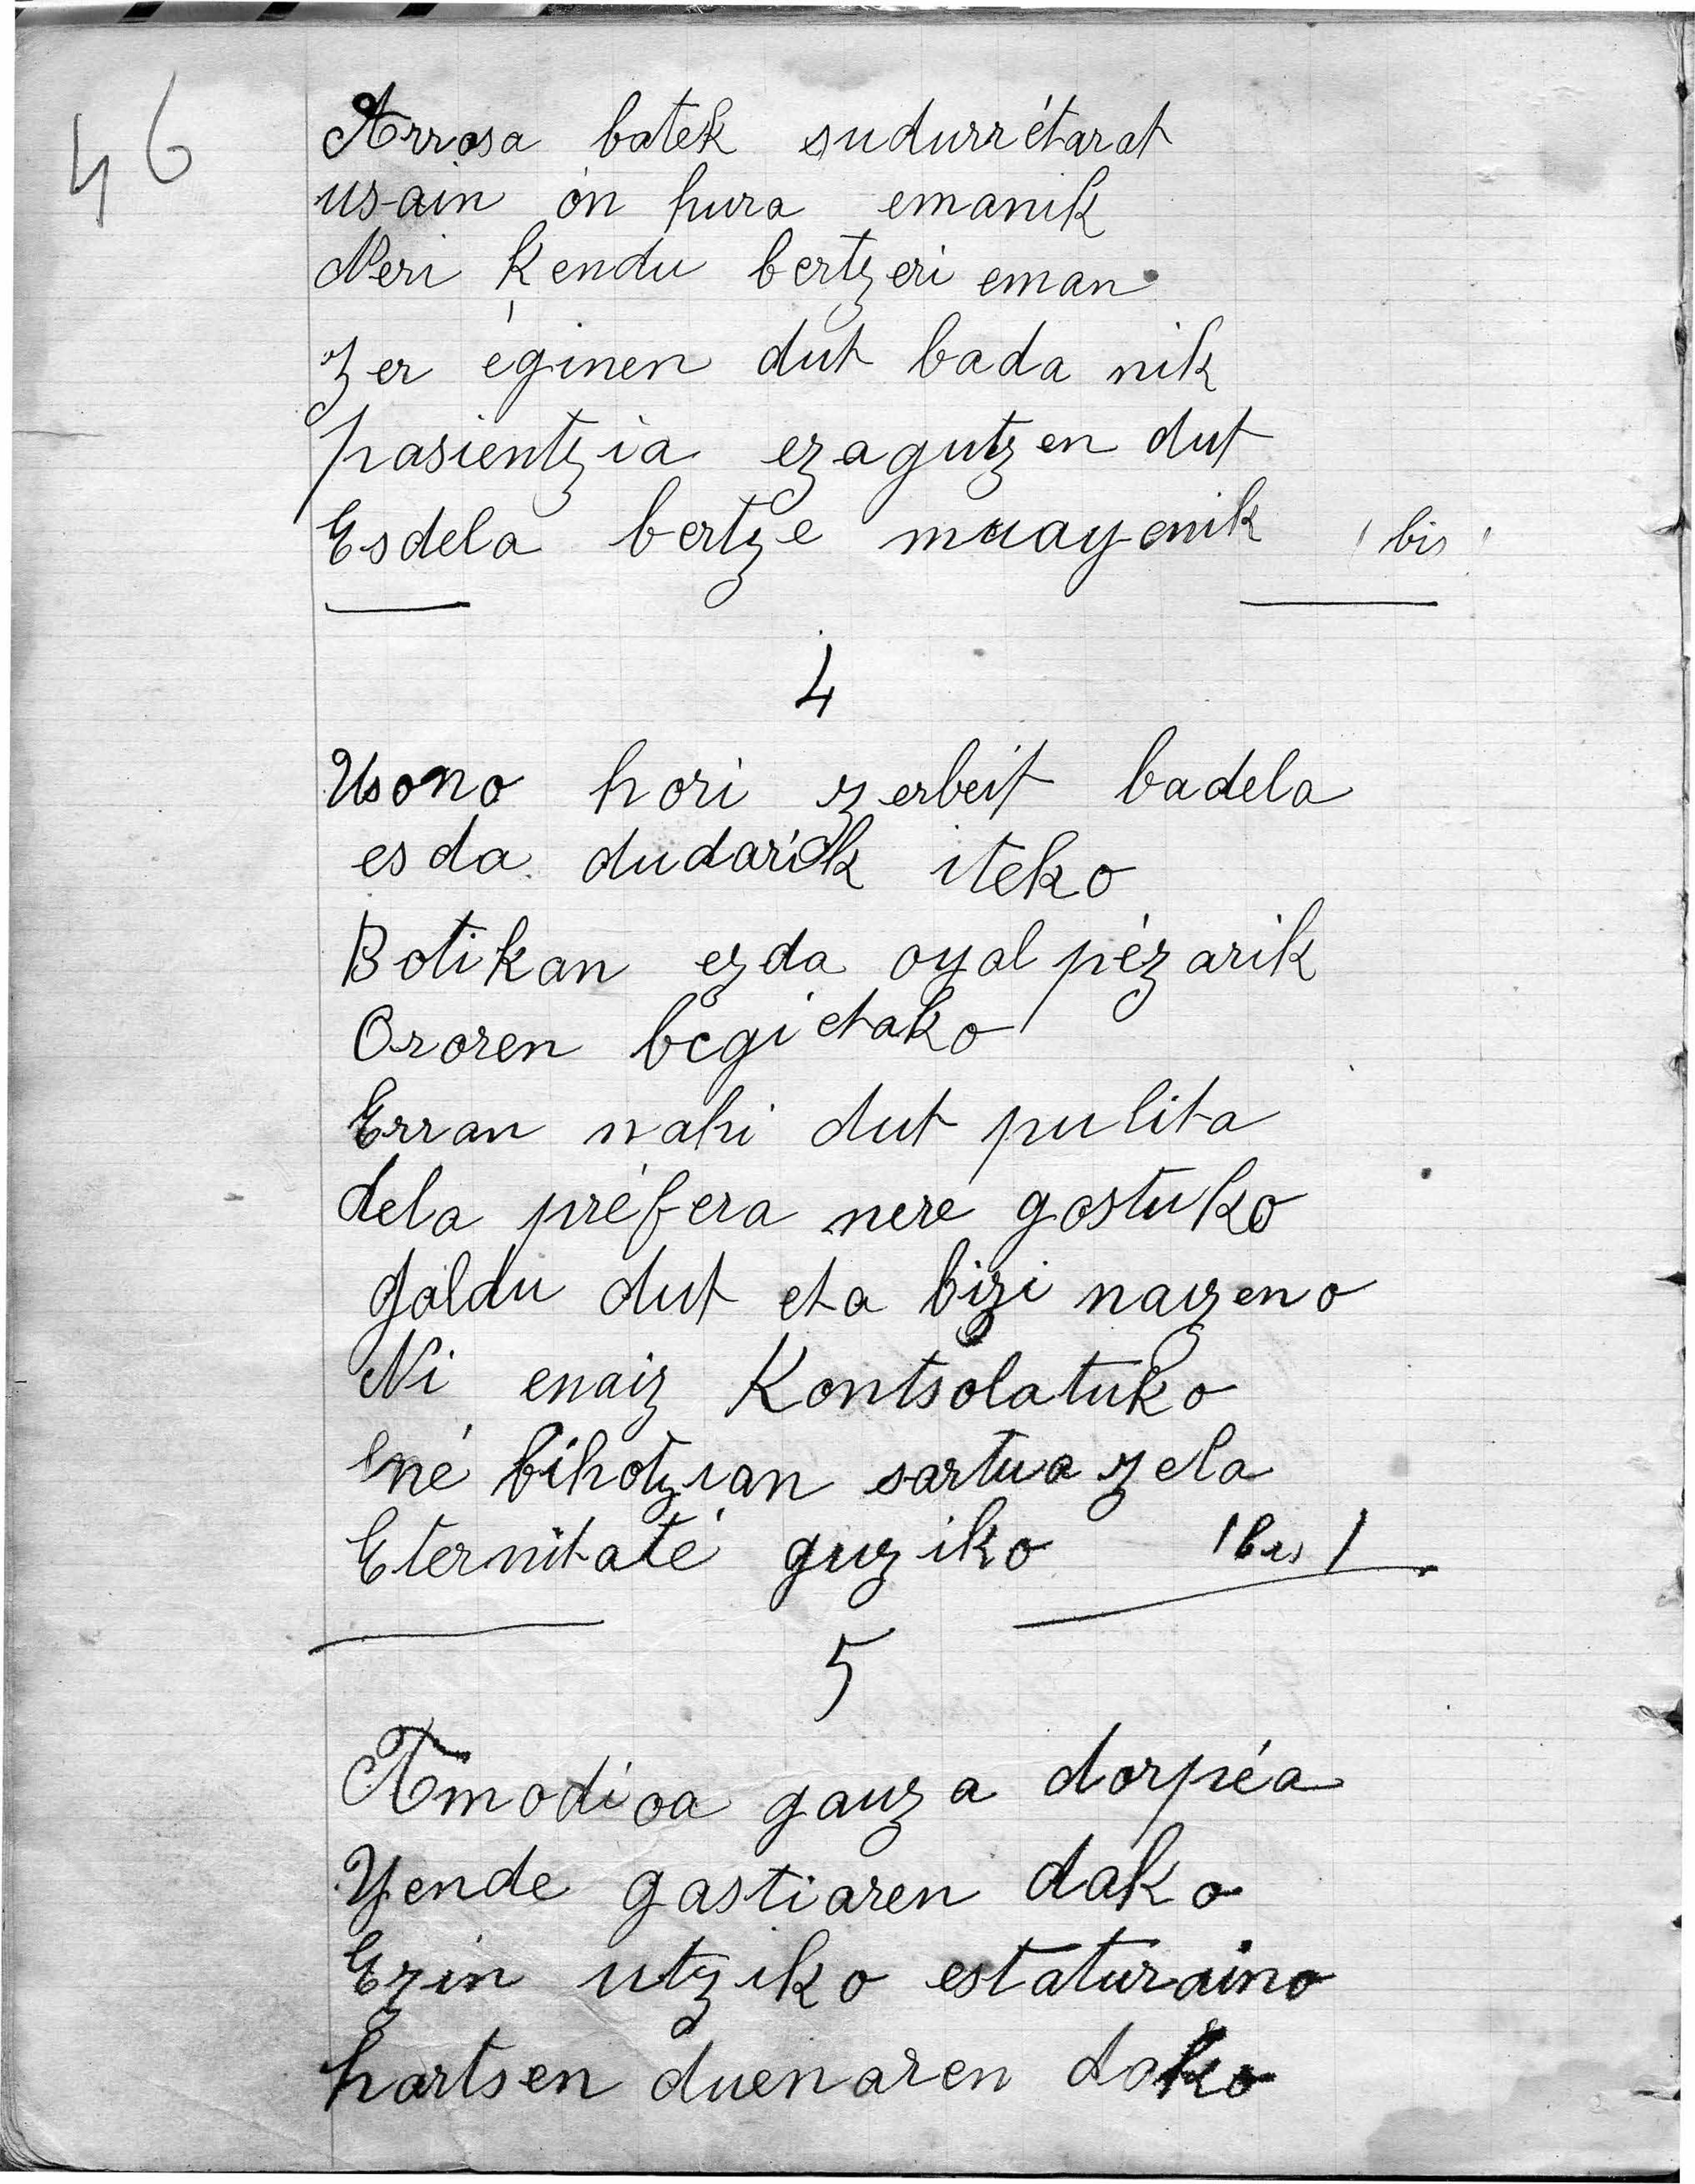 46
Arrosa batek sudurrétarat
usain on hura emanik
Neri kendu bertzeri eman
zer éginen dut bada nik
pasientzia ezagutzen dut
Esdela bertze muayenik (bis)
4
Usono hori zerbeit badela
esda dudarik iteko
Botikan ezda oyal pézarik
Ororen begietako
Erran nahi dut pulita
dela préfera nere gostuko
galdu dut eta bizi naizeno
Ni enaiz Kontsolatuko
Ené bihotzian sartua zela
Eternitaté guziko (bis)
5
Amodioa gauza dorpéa
Yende gastiaren dako
Ezin utziko estaturaino
hartsen duenaren dako